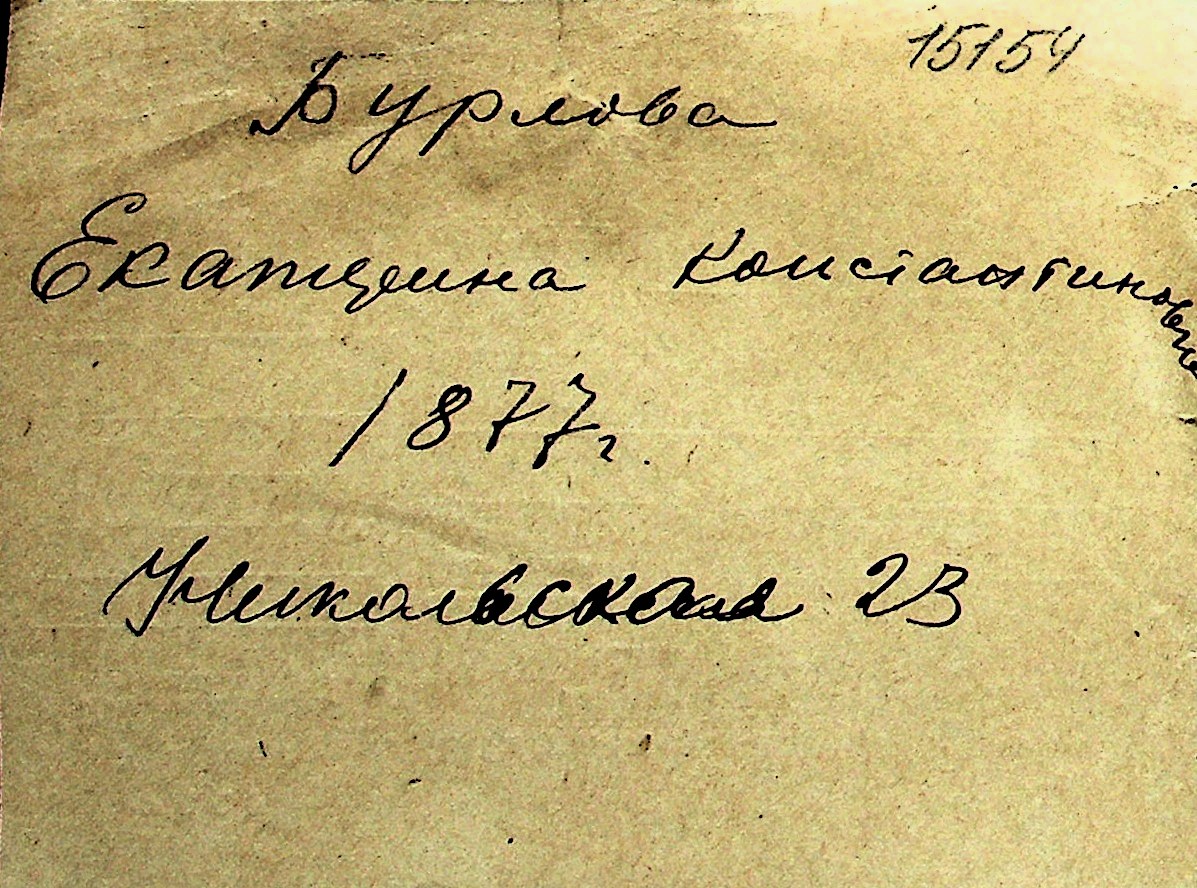 15154
Бурлова
Екатерина Константиновна
1877г.
Никольская 23